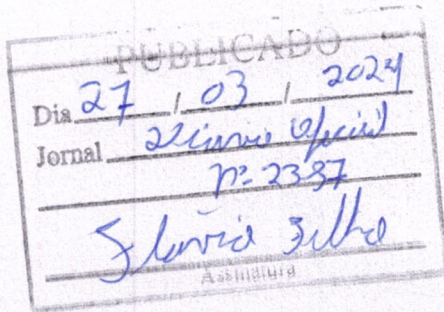 PUBLICADO
Dia 27 / 03 / 2024
Jornal Diário Oficial
nº 2387
Flávia Filho
Assinatura